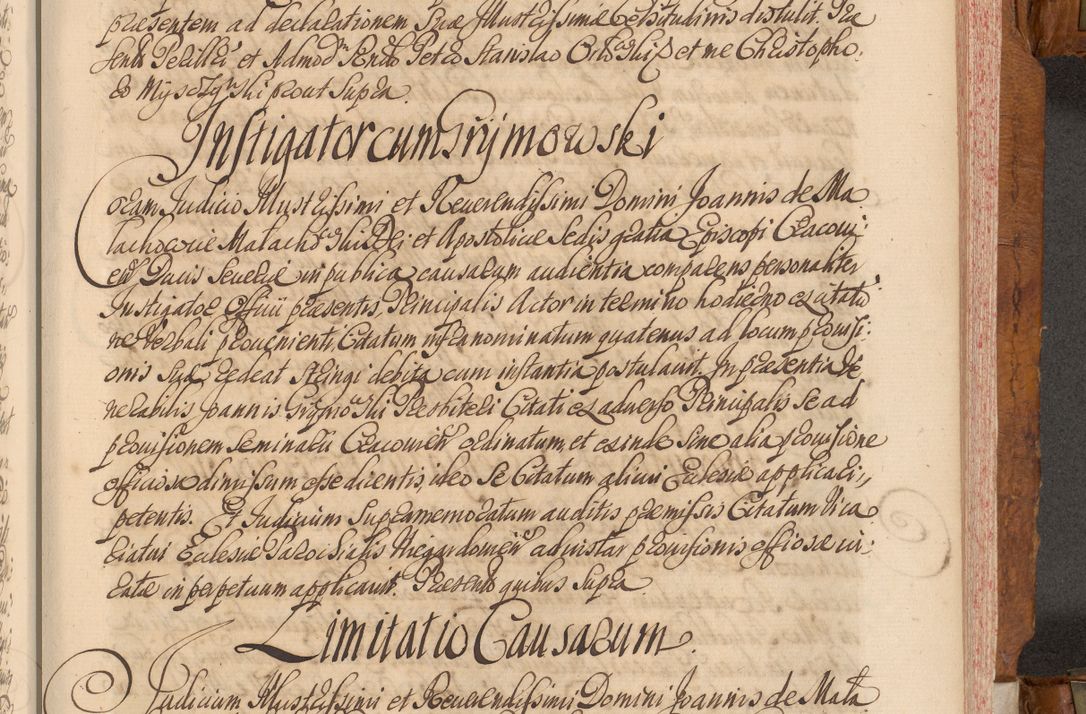 præsentem ad declarationem Suæ Illustrissimæ Celsitudinis distulit. Præ
sente Perillri et Admodm Rendo Petro Stanislao Orłowski et me Christopho
ro Myszkowski prout Supra.
Instigator cum Grymowski
Coram Judicio Illustrissimi et Reverendissimi Domini Joannis de Ma
lachowice Małachowski Dei et Apostolicæ Sedis gratia Episcopi Cracovi:
ens Ducis Severiæ in publica causarum audientia comparens personaliter
Instigator Officii præsentis, Principalis Actor in termino hodierno ex citatio
ne Verbali provenienti, Citatum infranominatum quatenus ad locum provisi:
onis suæ redeat stringi debita cum instantia postulavit. In præsentia Ve
nerabilis Joannis Presbiteri Citati ex adverso Principalis se ad
provisionem Seminarii Cracovien ordinatum, et exinde sine alia provisione
officiose dimissum esse dicentis, ideo se Citatum alicui Ecclesiæ applicari
petentis. Et Judicium Supramemoratum auditis præmissis Citatum Vica
riatui Ecclesiæ Parochialis ad instar provisionis officiose vi:
cariæ in perpetuum applicavit. Præsente quibus Supra.
Limitatio Causarum.
Judicium Illustrissimi et Reverendissimi Domini Joannis de Mała